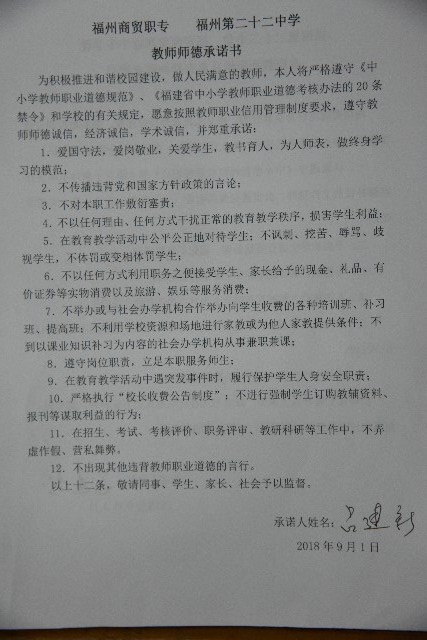 福州商贸职专　　福州第二十二中学
教师师德承诺书
为积极推进和谐校园建设，做人民满意的教师，本人将严格遵守《中
小学教师职业道德规范》、《福建省中小学教师职业道德考核办法的 20 条
禁令》和学校的有关规定，愿意按照教师职业信用管理制度要求，遵守教
师师德诚信，经济诚信，学术诚信，并郑重承诺：
1．爱国守法，爱岗敬业，关爱学生，教书育人，为人师表，做终身学
习的模范；
2．不传播违背党和国家方针政策的言论；
3．不对本职工作敷衍塞责；
4．不以任何理由、任何方式干扰正常的教育教学秩序，损害学生利益；
5．在教育教学活动中公平公正地对待学生；不讥刺、挖苦、辱骂、歧
视学生，不体罚或变相体罚学生；
6．不以任何方式利用职务之便接受学生、家长给予的现金、礼品、有
价证券等实物消费以及旅游、娱乐等服务消费；
7．不举办或与社会办学机构合作举办向学生收费的各种培训班、补习
班、提高班；不利用学校资源和场地进行家教或为他人家教提供条件；不
到以课业知识补习为内容的社会办学机构从事兼职兼课；
8．遵守岗位职责，立足本职服务师生；
9．在教育教学活动中遇突发事件时，履行保护学生人身安全职责；
10．严格执行“校长收费公告制度”；不进行强制学生订购教辅资料、
报刊等谋取利益的行为；
11．在招生、考试、考核评价、职务评审、教研科研等工作中，不弄
虚作假、营私舞弊。
12．不出现其他违背教师职业道德的言行。
以上十二条，敬请同事、学生、家长、社会予以监督。
承诺人姓名：吕建新
2018 年 9 月 1 日